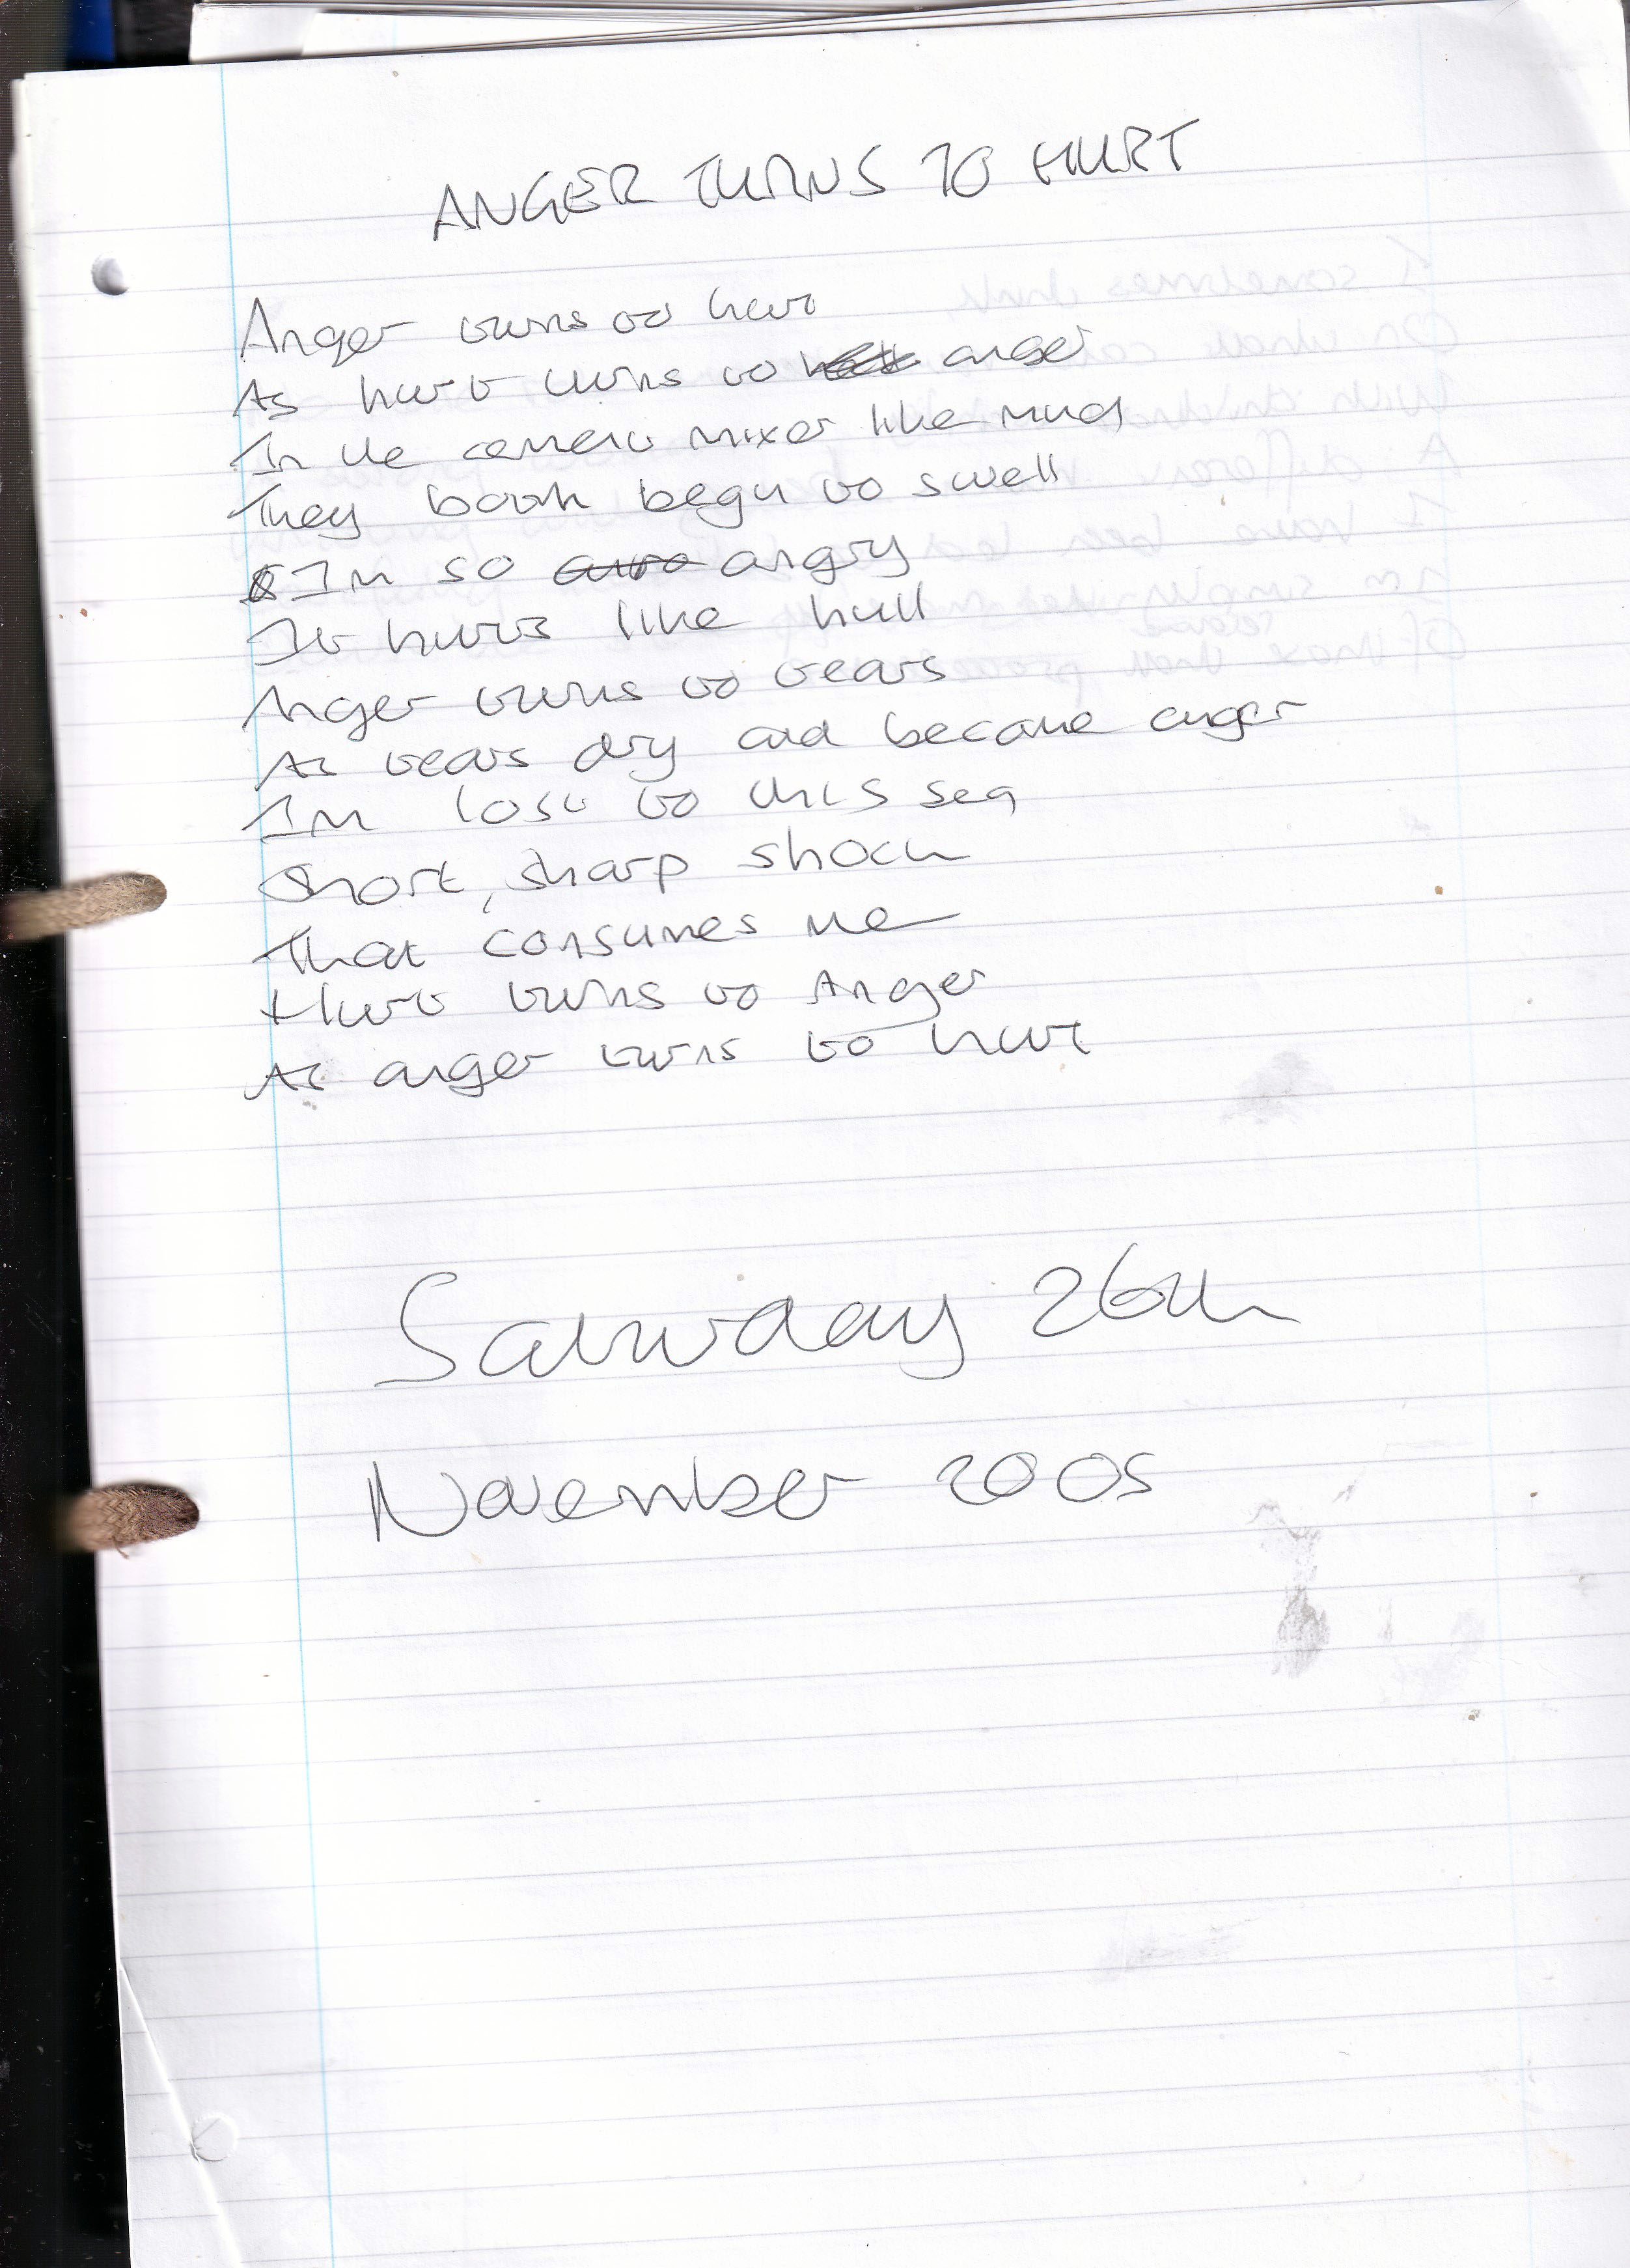 ANGER TURNS TO HURT
Anger turns to hurt
As hurt turns to anger
In the cement mixer like mud
They both begin to swell
Im so angry
It hurts like hull
Anger turns to tears
As tears dry and become anger
Im lost to this sea
Short, sharp shock
That consumes me
Hurt turns to Anger
As anger turns to hurt
Saturday 26th
November 2005